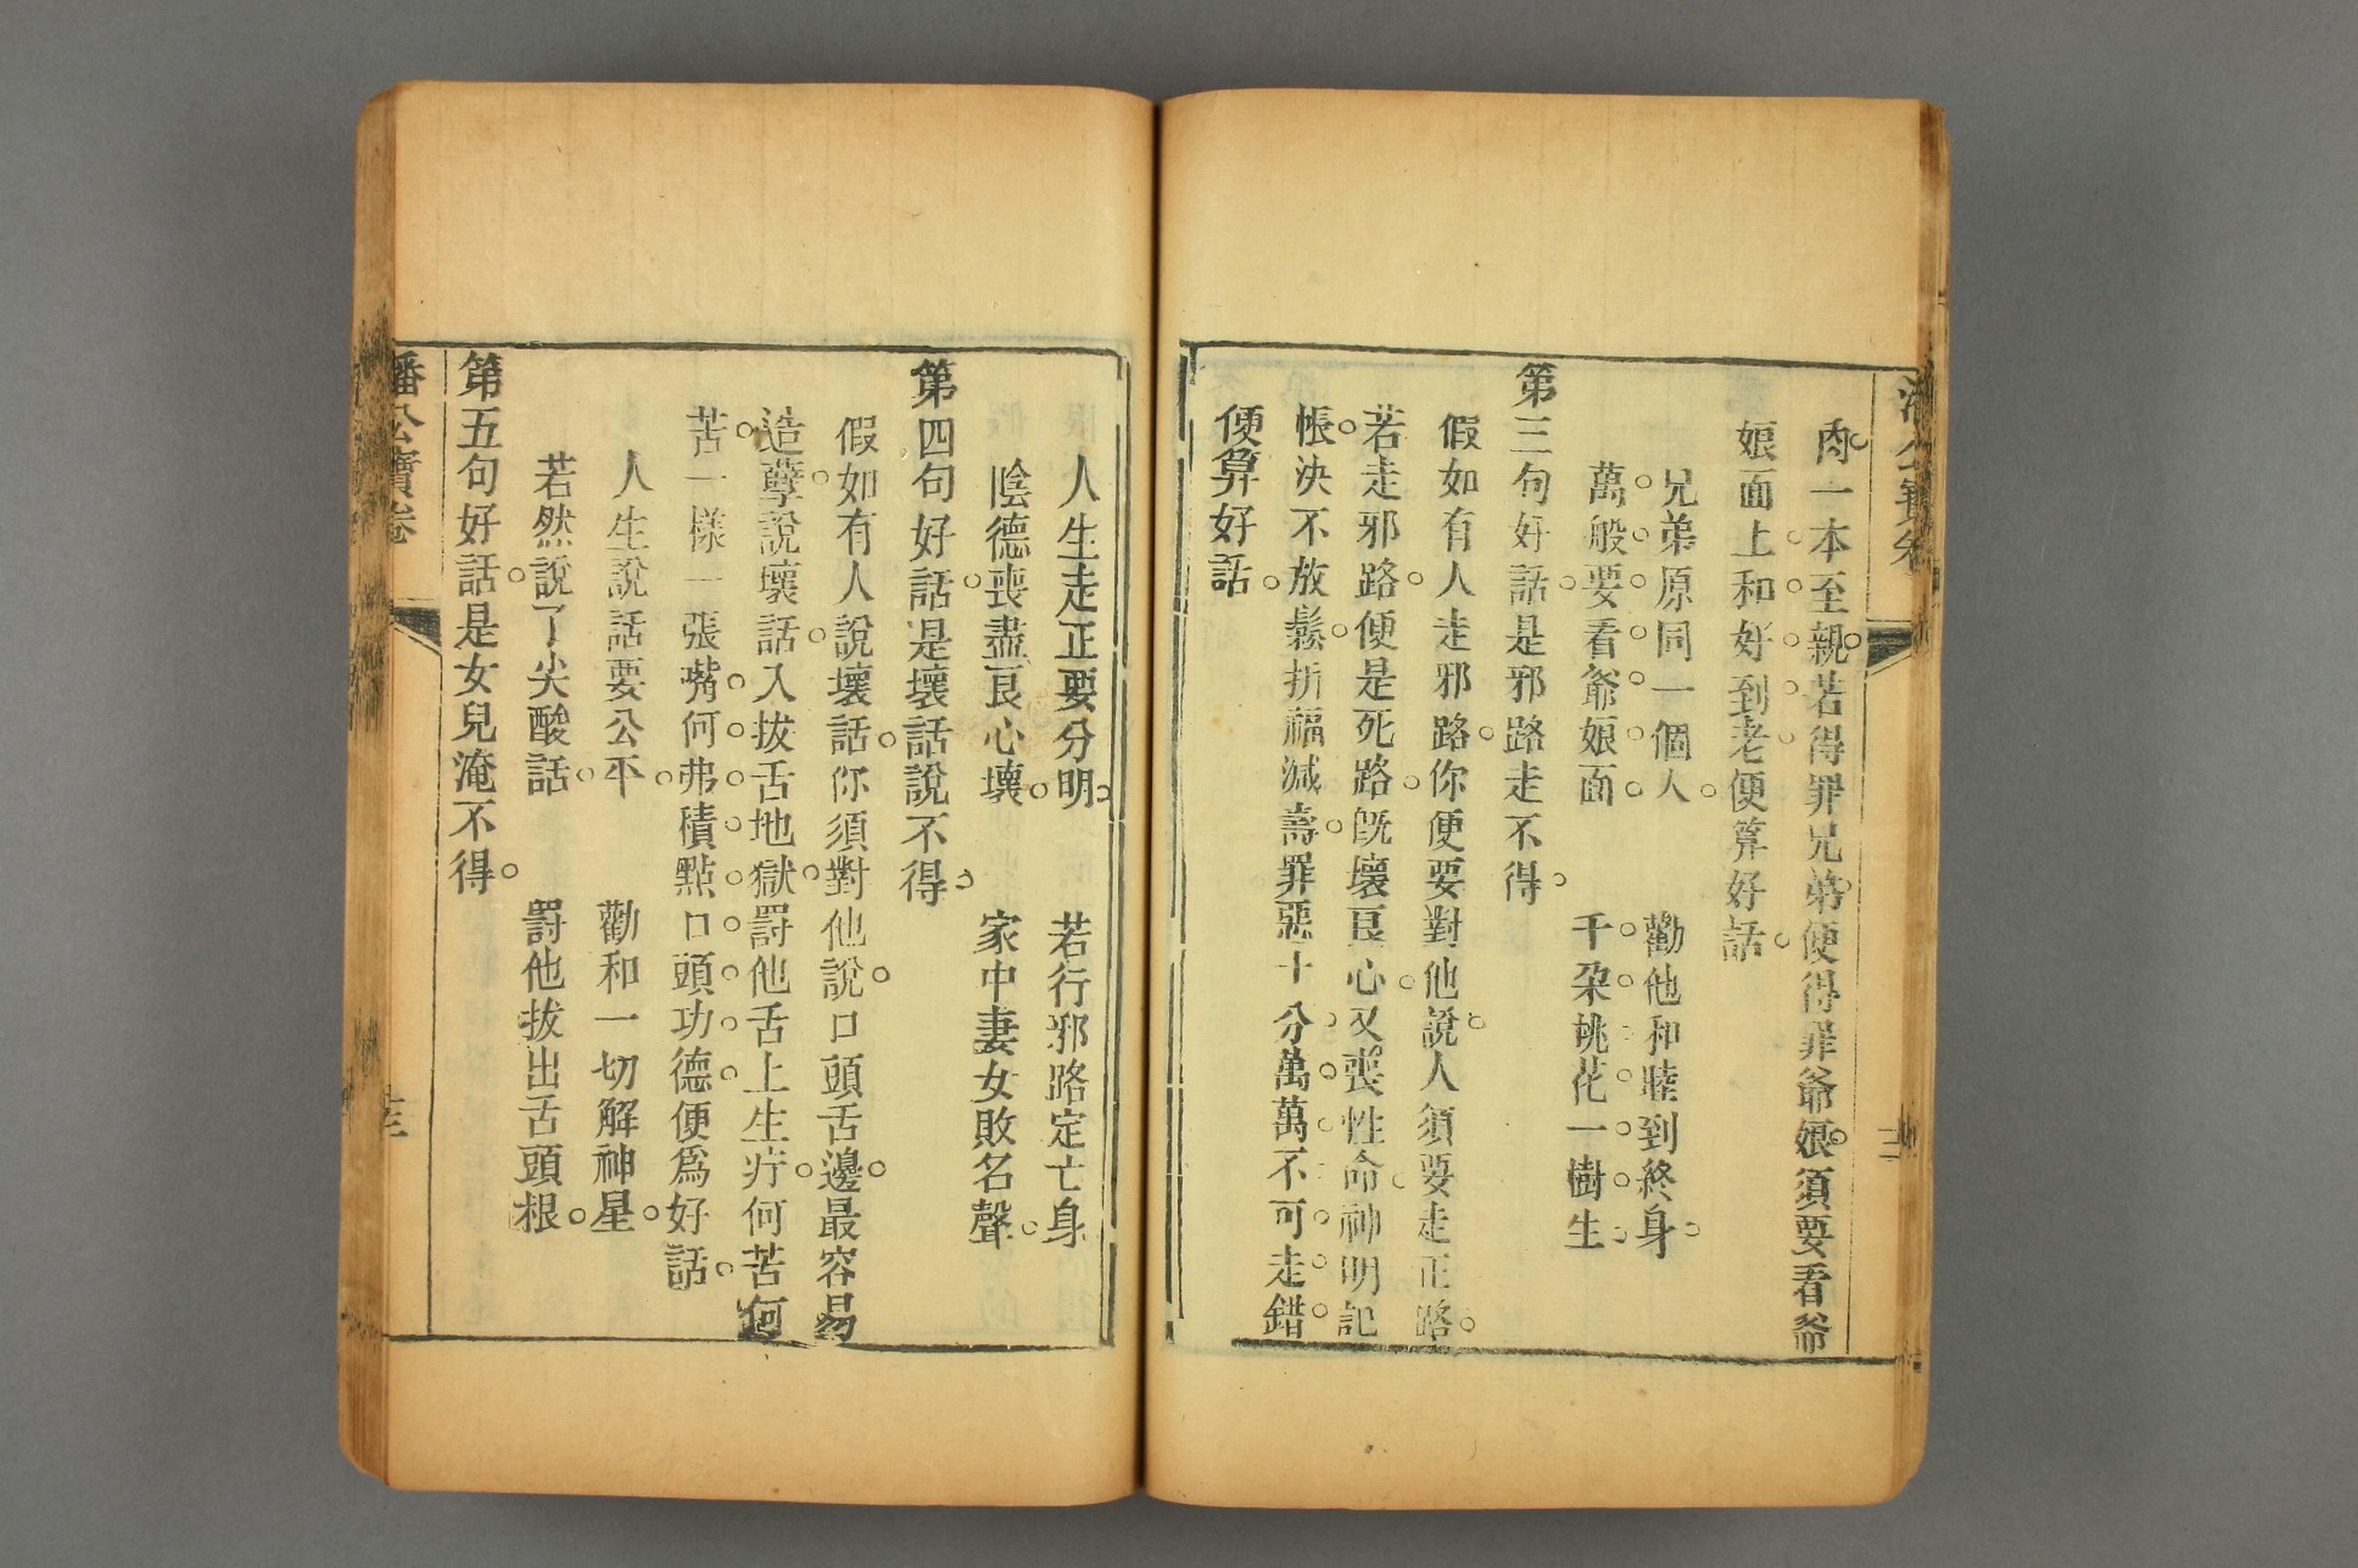 潘公寶卷
肉一本至親。若得罪兄弟。便得罪爺娘。須要看爺
娘面上。和。好。到。老。便算好話。
兄弟原同一個人。勸他和睦到終身。
萬。般。要。看。爺。娘。面。千。朶。桃。花。一。樹。生。
第三句好話。是邪路走不得。
假如有人走邪路。你便要對他說。人須要走正路。
若走邪路。便是死路。旣壞良心。又喪性命。神明記
帳。決不放鬆。折福減壽。罪惡十分。萬。萬。不。可。走。錯。
便算好話。
人生走正要分明。若行邪路定亡身
陰德喪盡良心壞。家中妻女敗名聲。
第四句好話。是壞話說不得。
假如有人說壞話。你須對他說。口頭舌邊。最容易
造孽。說壞話。入拔舌地獄。罰他舌上生疔。何苦何
苦。一樣一張嘴。何。弗。積。點。口。頭。功。德。便爲好話。
人生說話要公平。勸和一切解神星。
若然說了尖酸話。罰他拔出舌頭根。
第五句好話。是女兒淹不得。
潘公寶卷